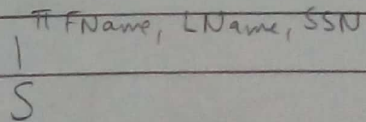 π FName, LName, SSN
|
S